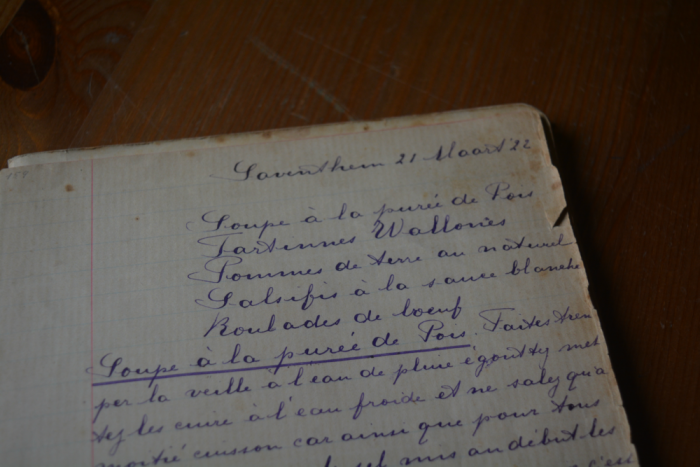 Saventhem 21 Maart 22
Soupe à la purée de Pois
Tartinnes Wallonies
Pommes de terre au naturel
Salsifis à la sauce blanche
Roulades de boeuf
Soupe à la purée de Pois. Faites trem
per la veille à l'eau de pluie égouttez met
tez les cuire à l'eau froide et ne salez qu'a
moitié cuisson car ainsi que pour tous
sel mis au début les
c'est